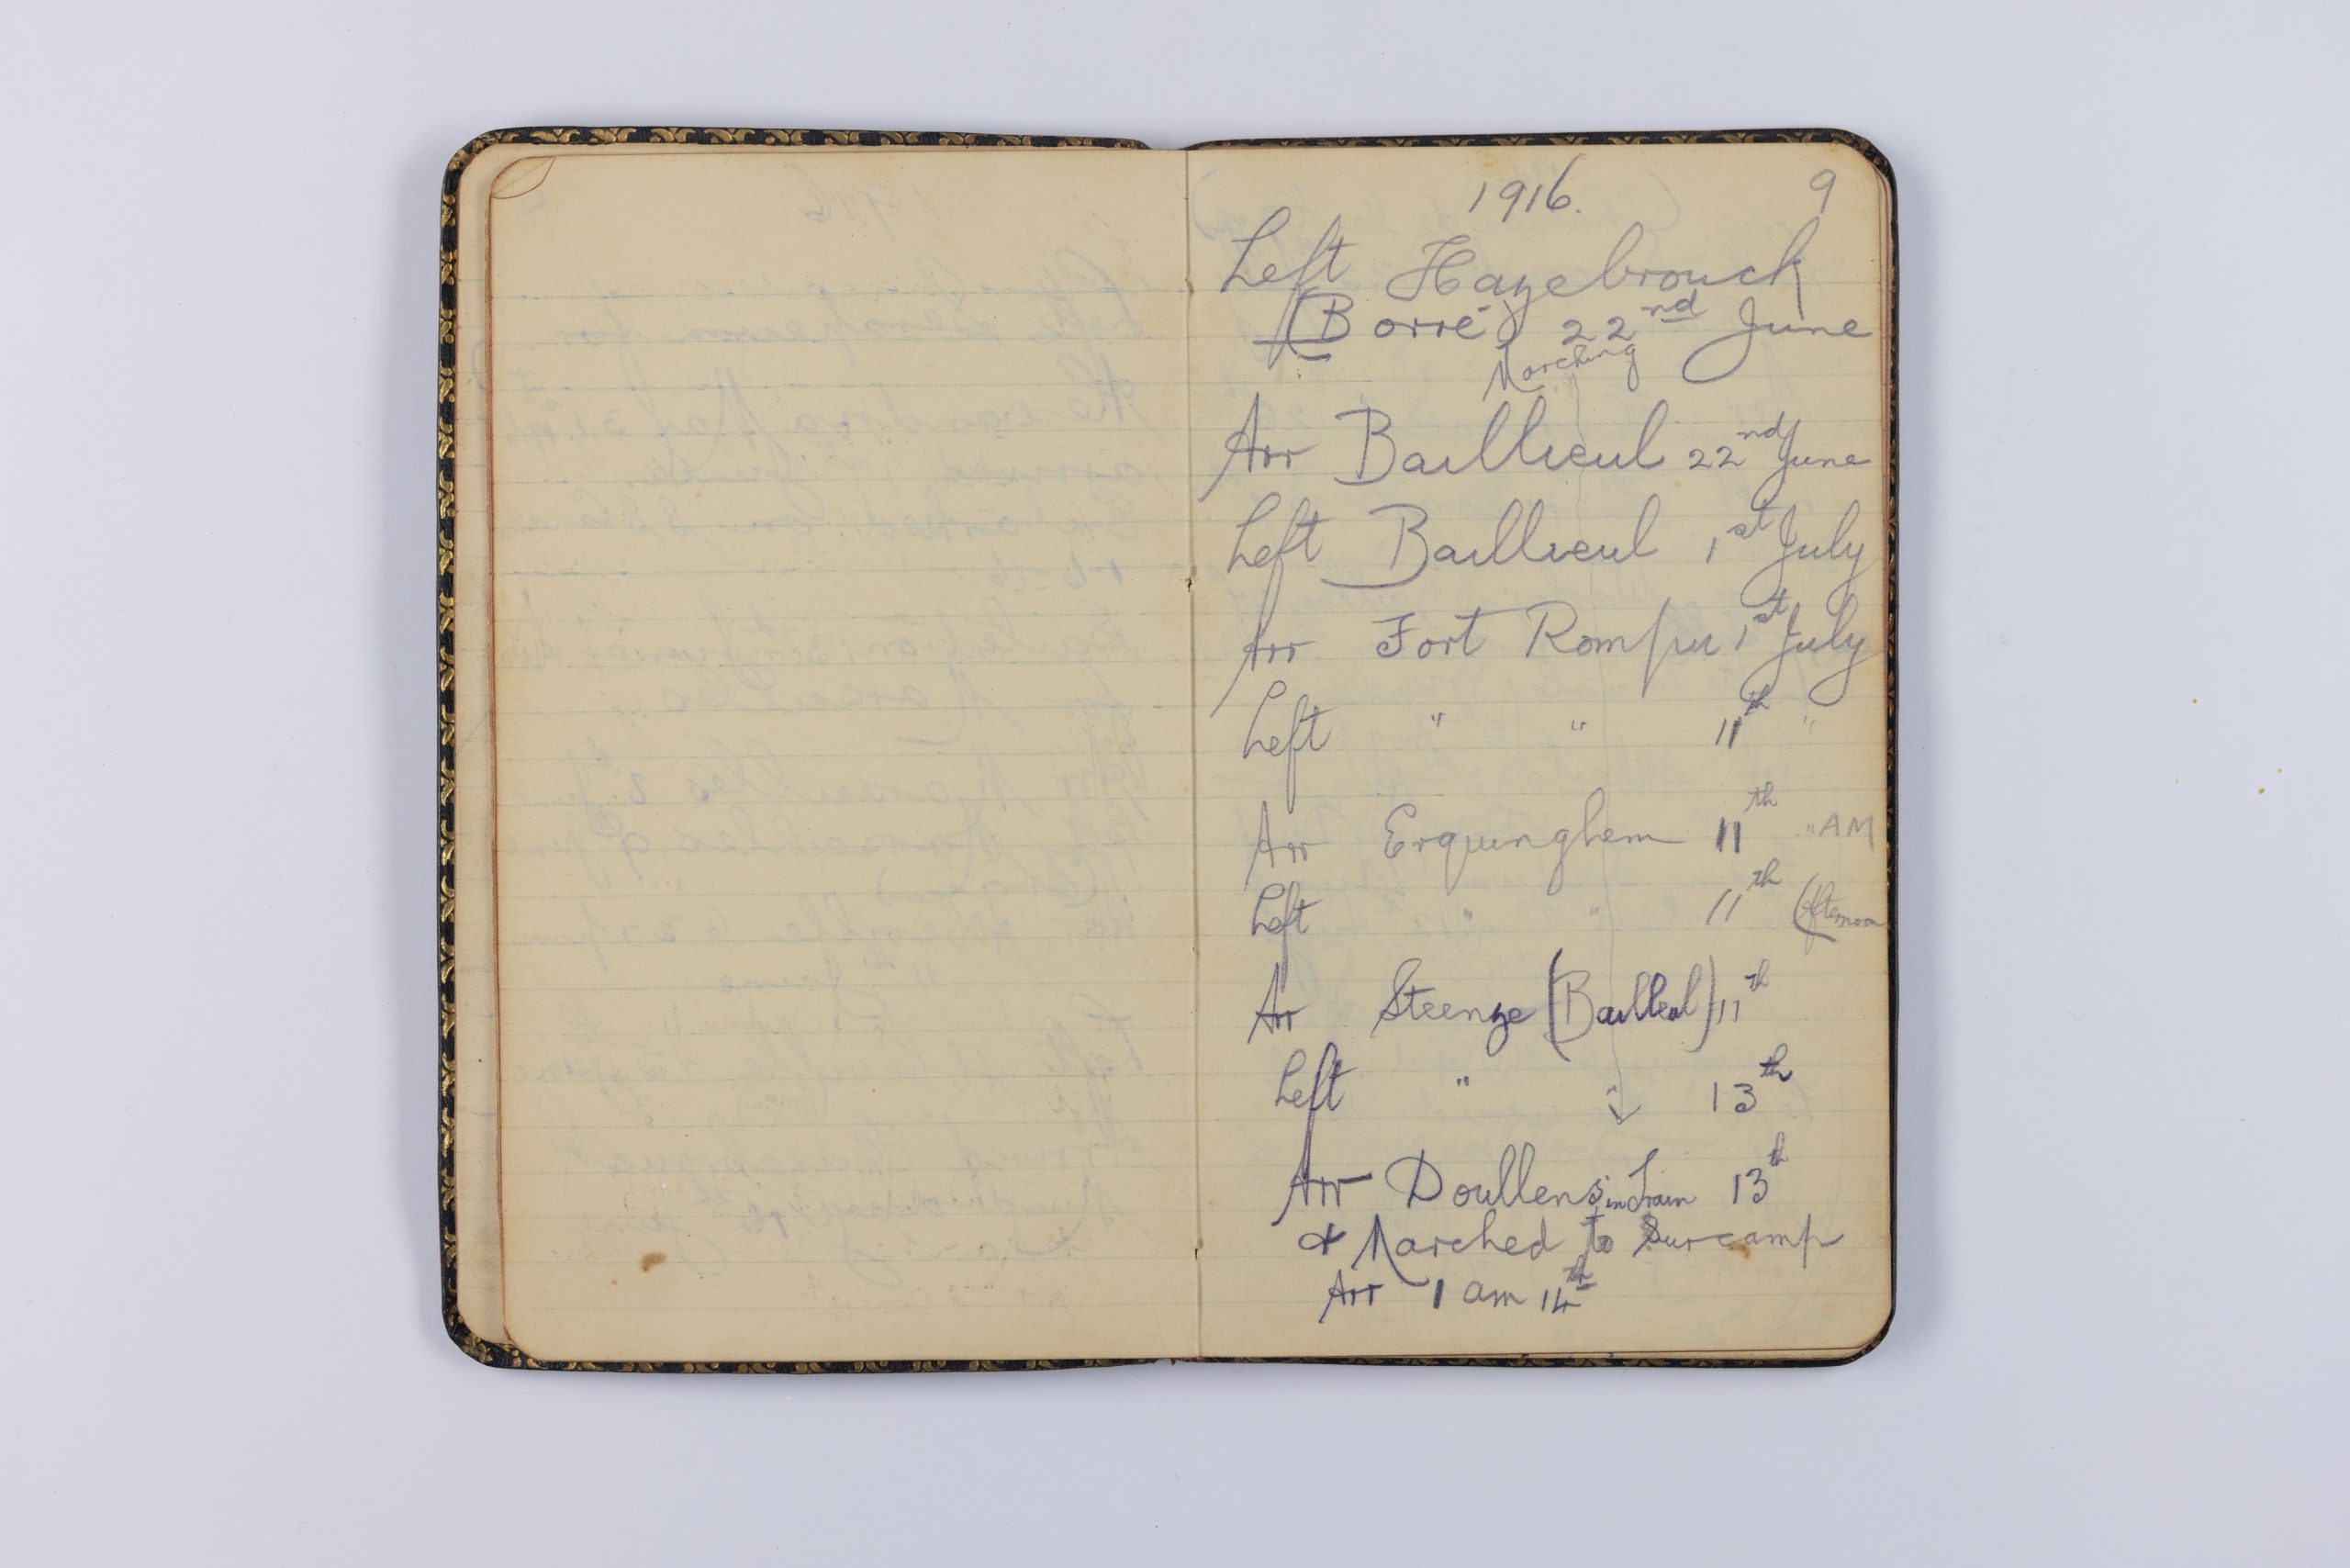 1916. 9
Left Hazebrouck
(Borré) 22nd June
Marching
Arr Baillieul 22nd June
Left Baillieul 1st July
Arr Fort Rompu 1st July
Left " " 11th "
Arr Erquinghem 11th " AM
Left " " 11th (Afternoon
Arr Steenze (Bailleul) 11th
Left " " 13th
Arr Doullens in Train 13th
& Marched to Surcamp
Arr 1 am 14th